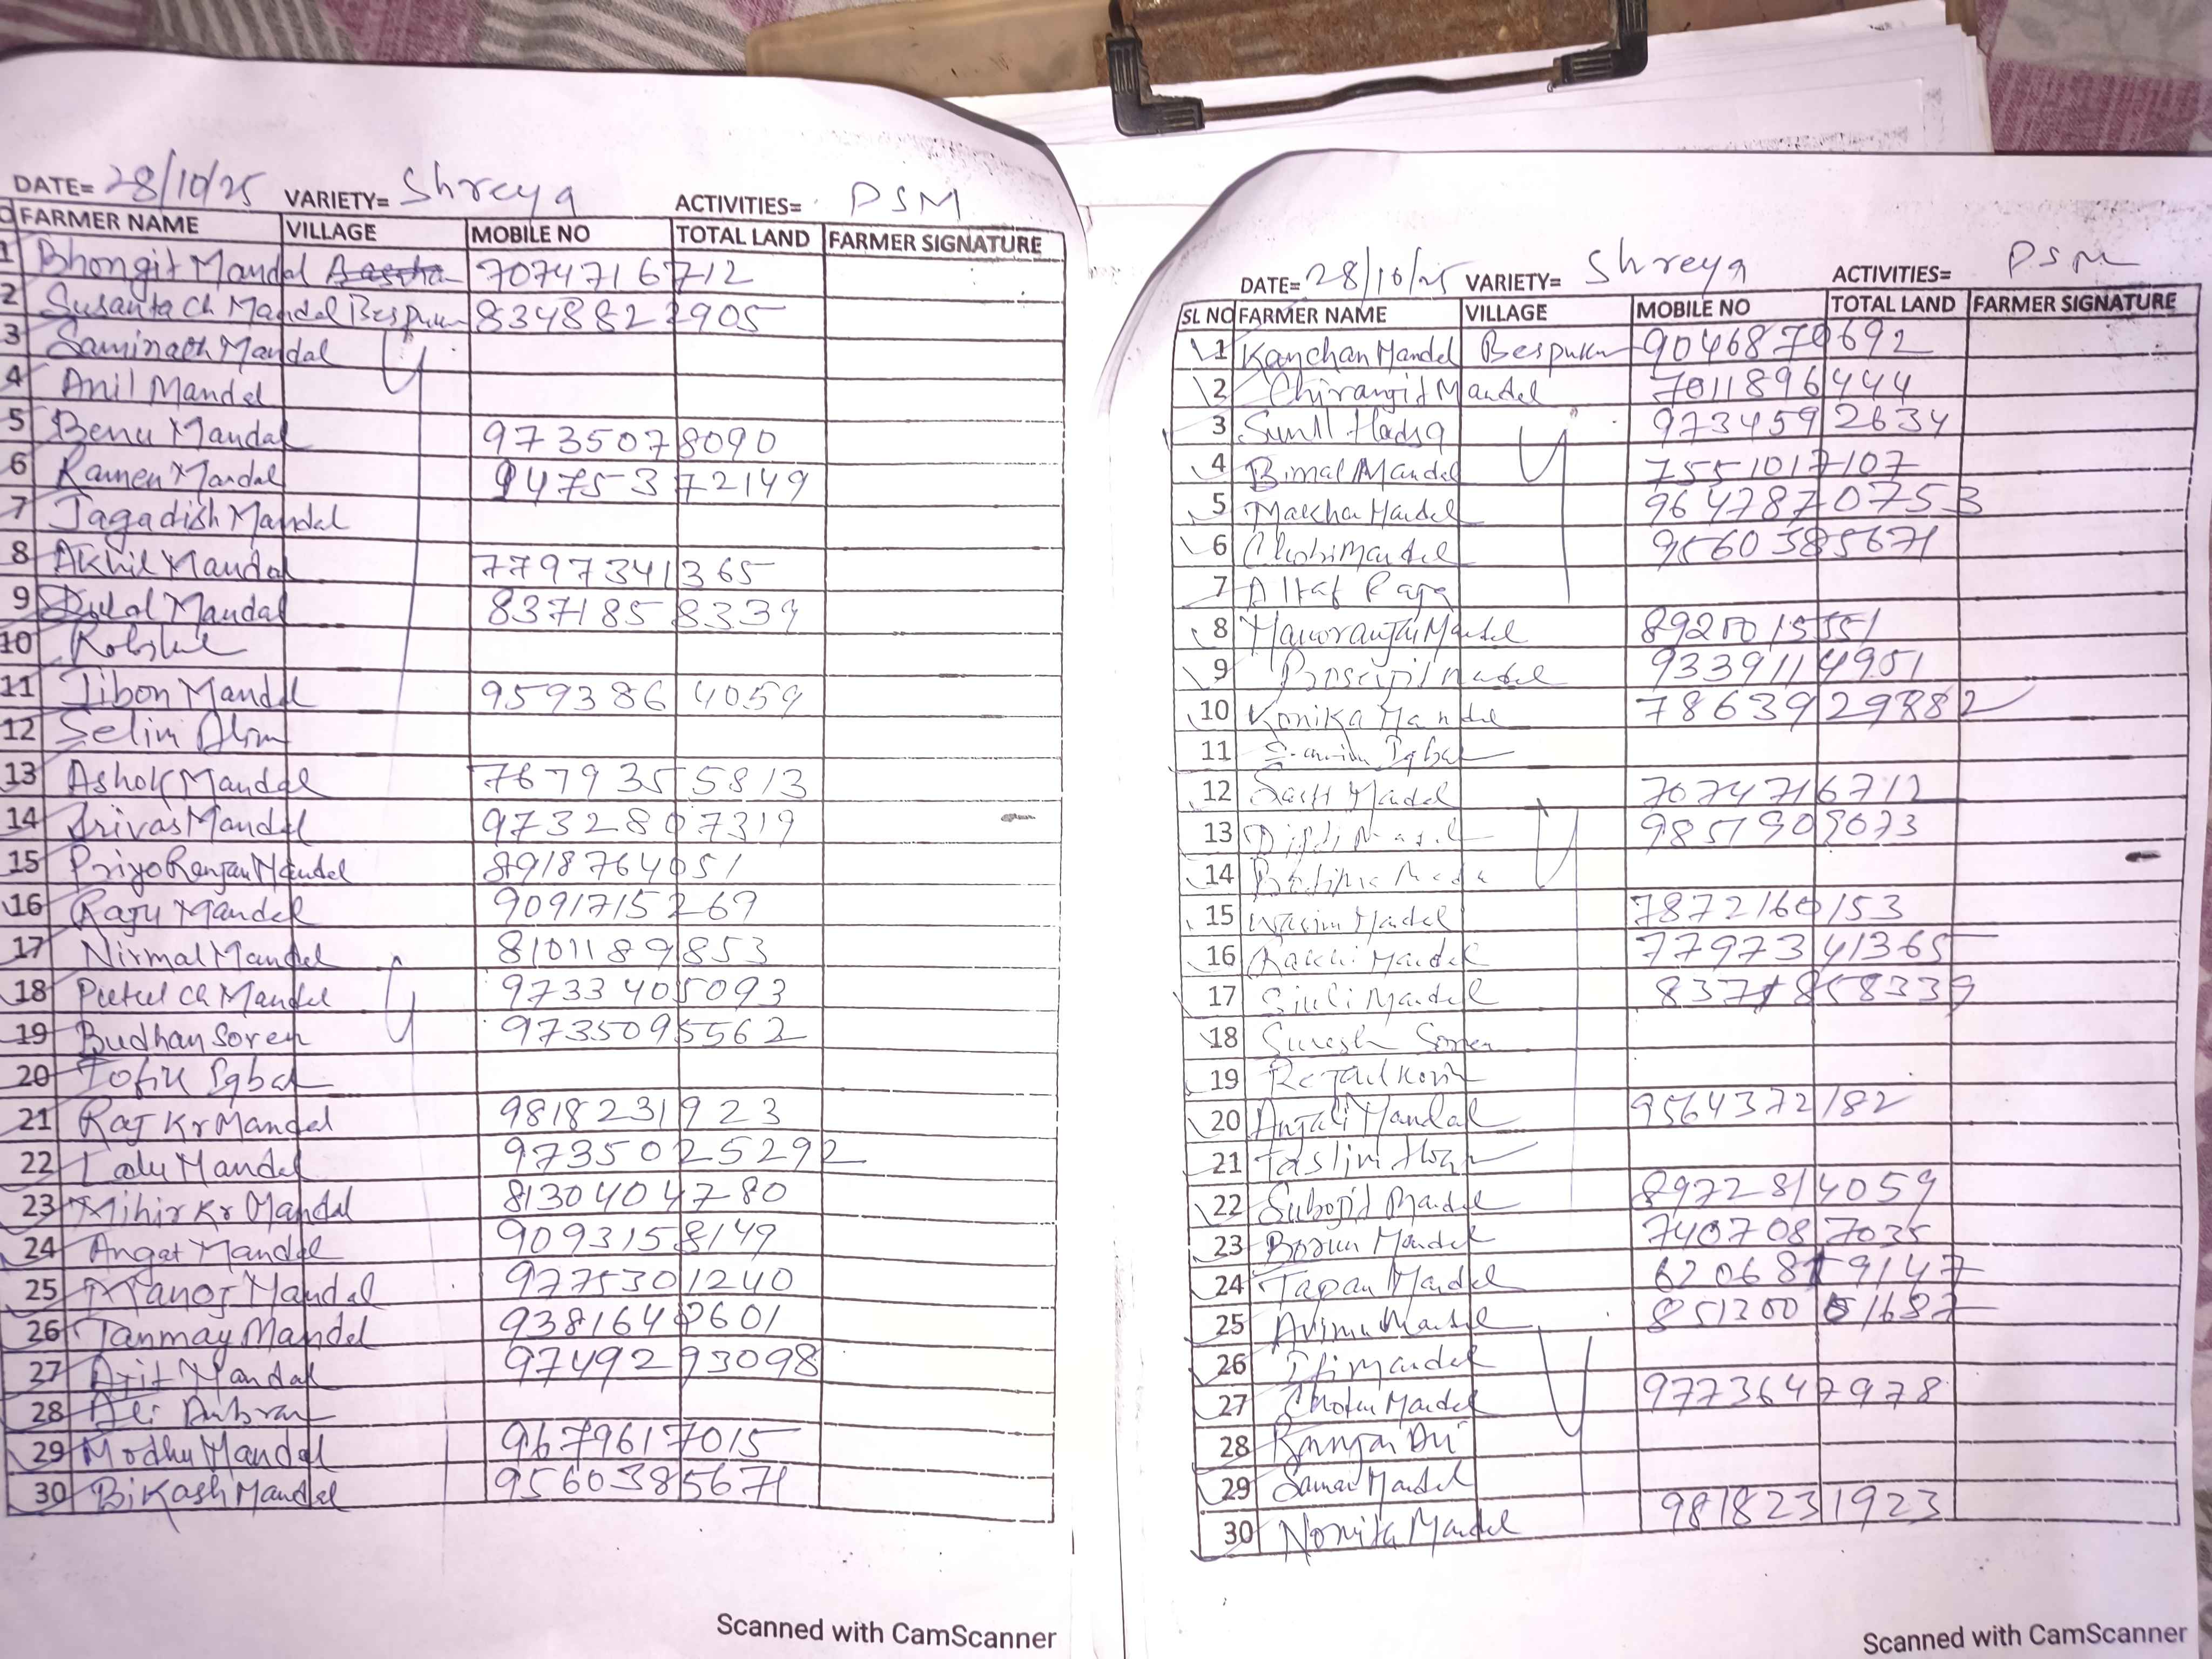 DATE= 28/10/25 VARIETY= Shreya ACTIVITIES= PSM
O FARMER NAME VILLAGE MOBILE NO TOTAL LAND FARMER SIGNATURE
1 Bhongit Mandal 7074716712
2 Susanta Ch Mandal Bespukur 8348822905
3 Saminath Mandal
4 Anil Mandal
5 Benu Mandal 9735078090
6 Ramen Mandal 9475372149
7 Jagadish Mandal
8 Akhil Mandal 7797341365
9 Dulal Mandal 8371858339
10
11 Jibon Mandal 9593864059
12 Selim Alim
13 Ashok Mandal 7679355813
14 Srivas Mandal 9732807319
15 Priyo Ranjan Mandal 8918764051
16 Raju Mandal 9091715269
17 Nirmal Mandal 8101189853
18 Putul Ch Mandal 9733405093
19 Budhan Soren 9735095562
20 Tofik Iqbal
21 Raj Kr Mandal 9818231923
22 Ladu Mandal 9735025292
23 Mihir Kr Mandal 8130404780
24 Angat Mandal 9093158149
25 Manoj Mandal 9775301240
26 Tanmay Mandal 9381648601
27 Ajit Mandal 9749293098
28 Ali
29 Modhu Mandal 9679617015
30 Bikash Mandal 9560385671
Scanned with CamScanner
DATE= 28/10/25 VARIETY= Shreya ACTIVITIES= PSM
SL NO FARMER NAME VILLAGE MOBILE NO TOTAL LAND FARMER SIGNATURE
1 Kanchan Mandal Bespukur 9046870692
2 Chirangit Mandal 7011896444
3 Sunil 9734592634
4 Bimal Mandal 7551017107
5 Makhan Mandal 9647870753
6 Mandal 9560385671
7 Altaf Raja
8 Manoranjan Mandal 8920015551
9 Mandal 9339114951
10 Konika Mandal
11 Iqbal
12 Mandal 7074716712
13 9851909073
14
15 Wasim Mandal 7872160153
16 Rakhi Mandal 7797341365
17 Siuli Mandal 8371858339
18 Suresh Soren
19
20 Anjali Mandal 9564372182
21 Taslim
22 Subojit Mandal 8972814059
23 Borun Mandal 7407087035
24 Tapan Mandal
25 Mandal
26 Mandal
27 Chotan Mandal 9773647978
28 Ali
29 Mandal
30 Nomita Mandal 9818231923
Scanned with CamScanner